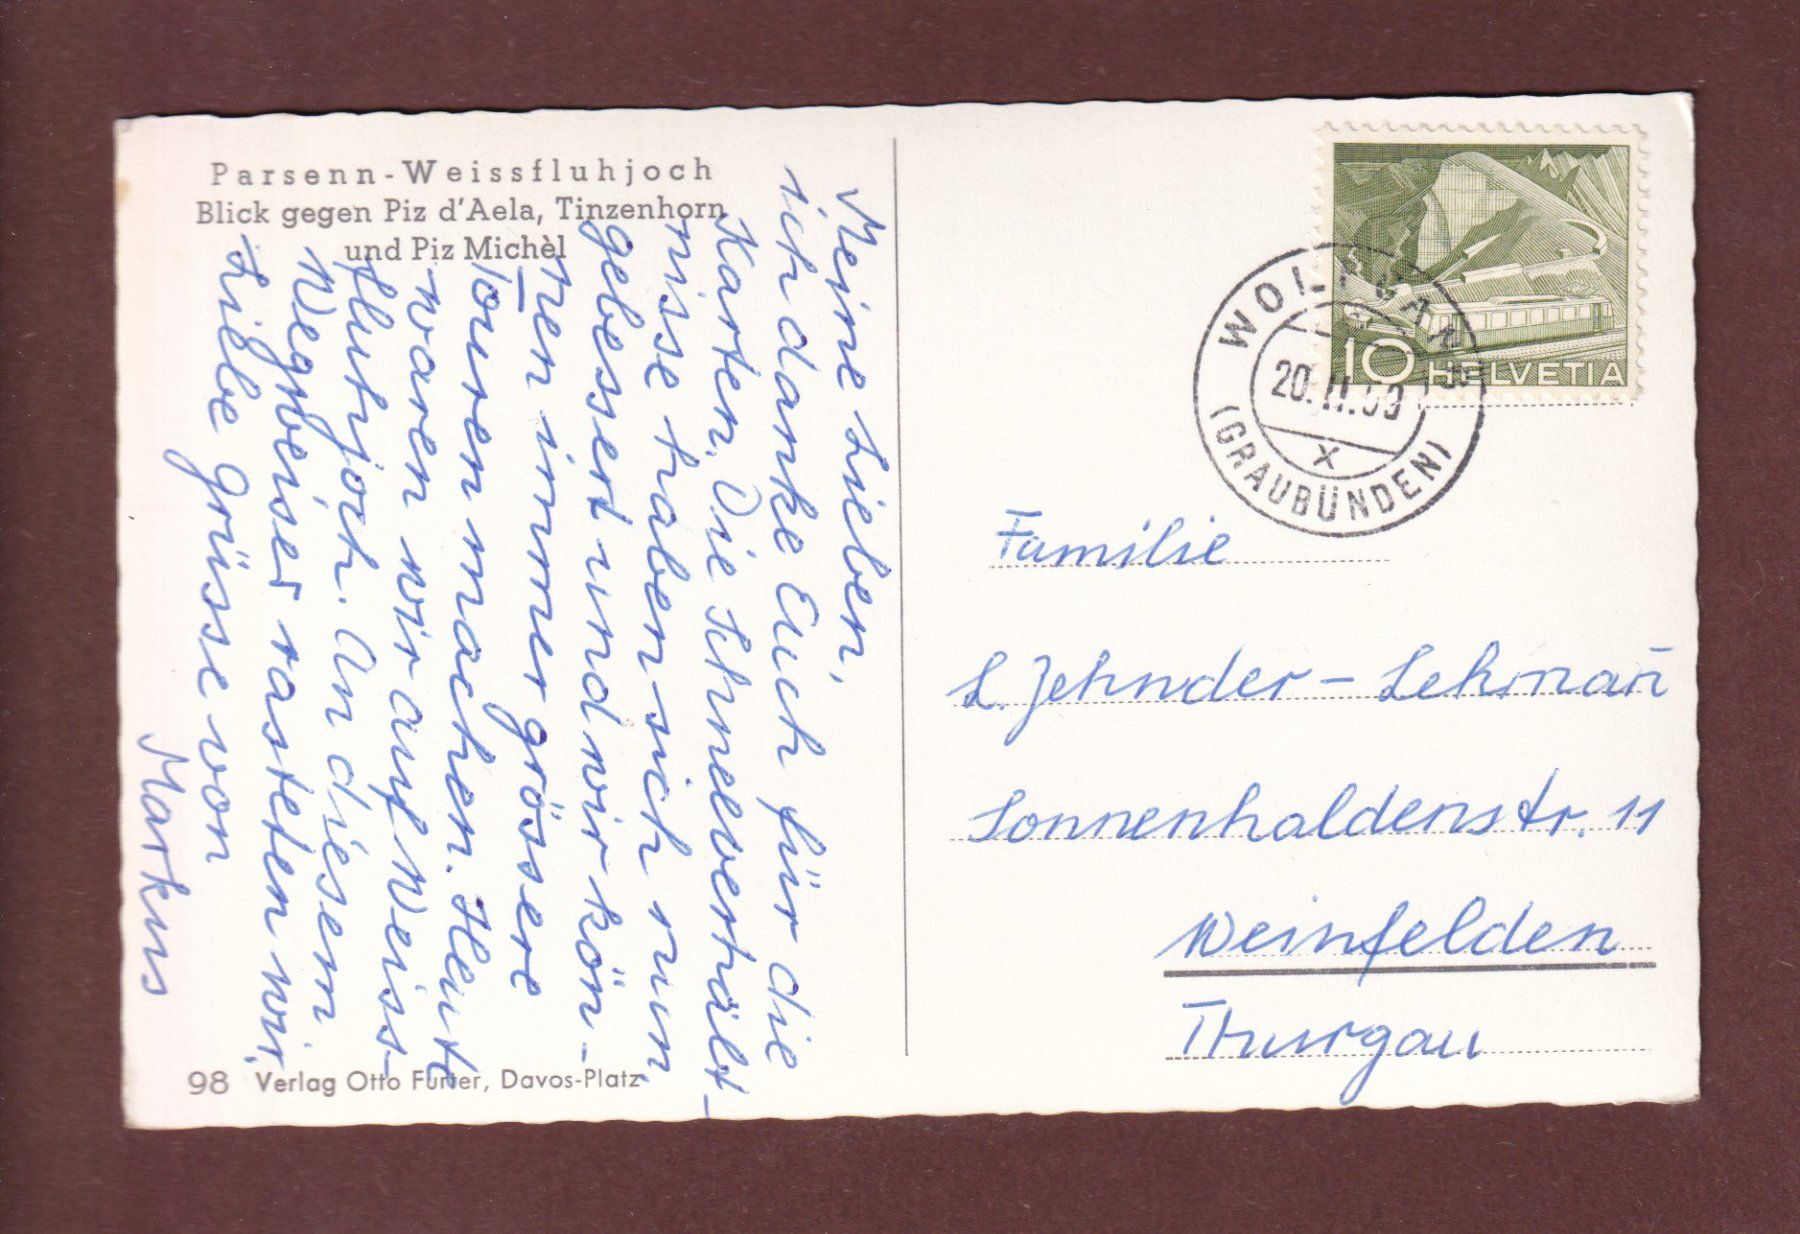 Parsenn-Weissfluhjoch
Blick gegen Piz d'Aela, Tinzenhorn
und Piz Michèl
Meine Lieben,
ich danke Euch für die
Karten. Die Schneeverhält-
nisse haben sich nun
gebessert und wir kön-
nen immer grössere
Touren machen. Heute
waren wir auf Weiss-
fluhjoch. An diesem
Wegweiser rasteten wir.
Liebe Grüsse von
Markus
98 Verlag Otto Furter, Davos-Platz
10 HELVETIA
WOLFGANG
(GRAUBÜNDEN)
X
Familie
L. Zehnder - Lehman̄
Sonnenhaldenstr. 11
Weinfelden
Thurgau